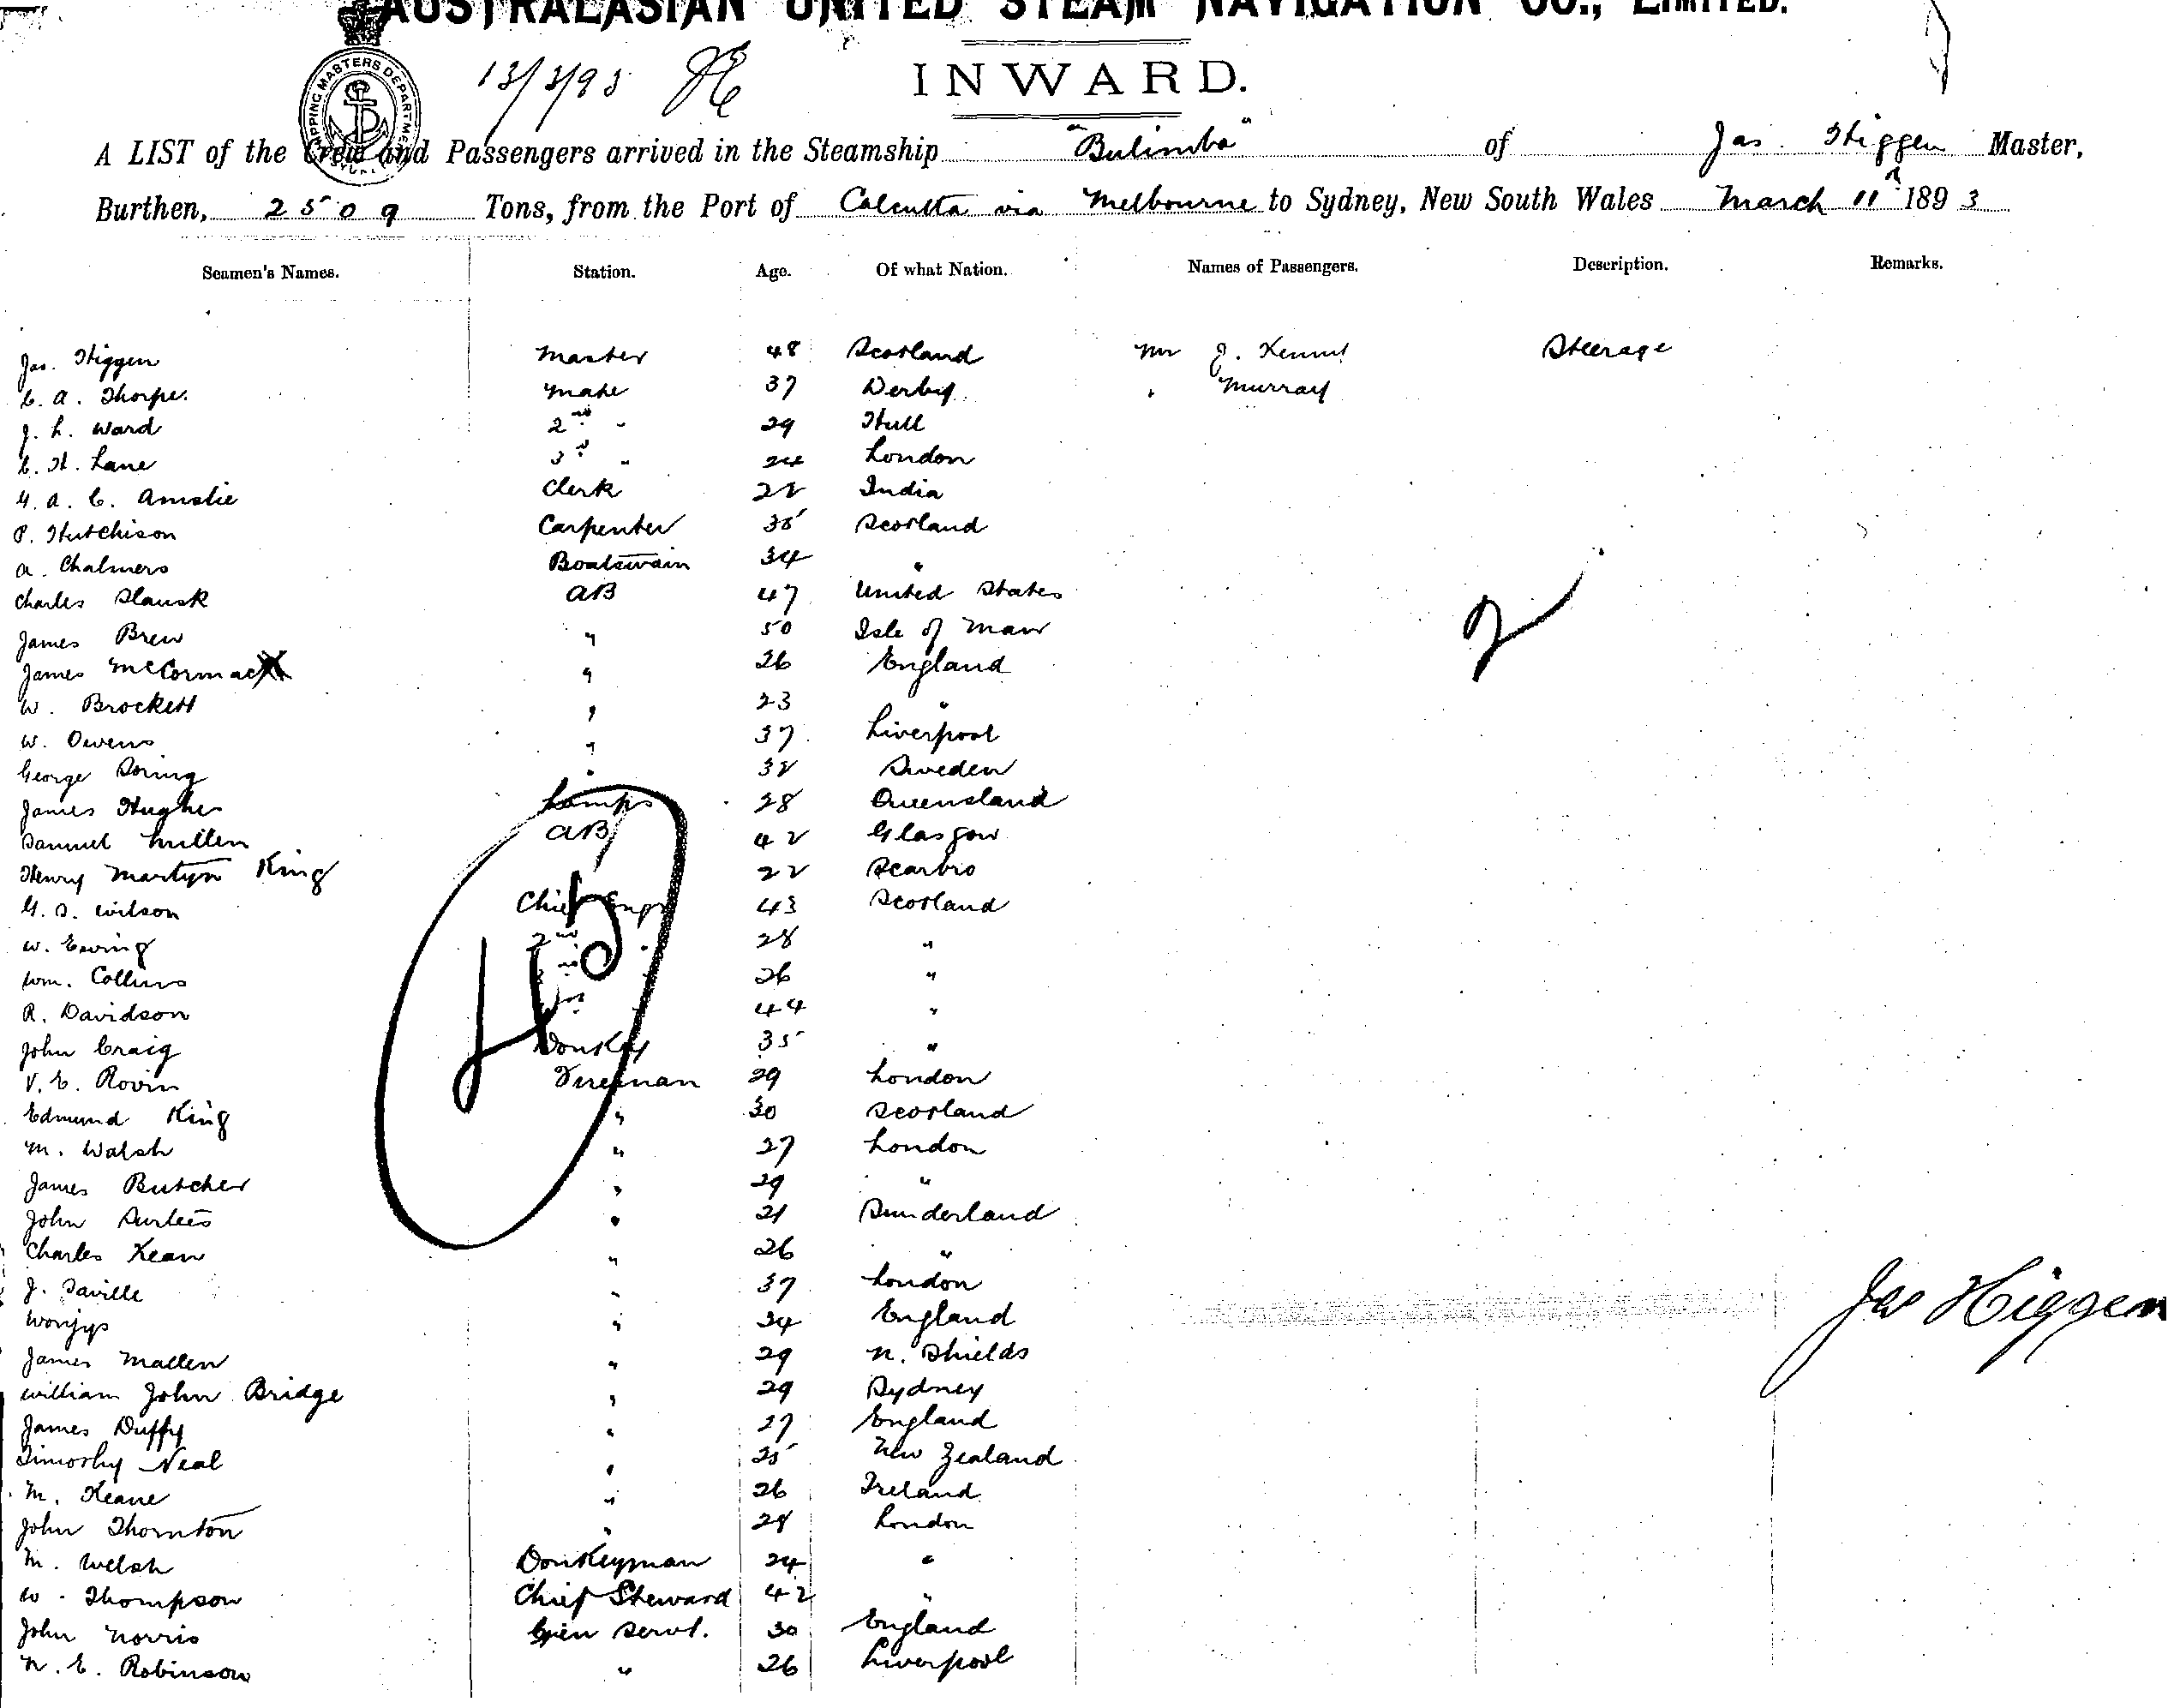 AUSTRALASIAN UNITED STEAM NAVIGATION CO., LIMITED.
13/3/93
INWARD.
SHIPPING MASTERS DEPARTMENT
A LIST of the Crew and Passengers arrived in the Steamship "Bulimba" of Jas. Higgen Master,
Burthen, 2509 Tons, from the Port of Calcutta via Melbourne to Sydney, New South Wales March 11th 1893
Seamen's Names. Station. Age. Of what Nation. Names of Passengers. Description. Remarks.
Jas. Higgen Master 48 Scotland Mr J. Steerage
C. A. Thorpe. Mate 37 Derby " Murray
J. L. Ward 2nd " 29 Hull
C. H. Lane 3rd " 24 London
G. A. C. Clerk 22 India
P. Hutchison Carpenter 35 Scotland
A. Chalmers Boatswain 34 "
Charles AB 47 United States
James Brew " 50 Isle of Man
James McCormack " 26 England
W. Brockett " 23 "
W. Owens " 37 Liverpool
George Soring " 32 Sweden
James Hughes Lamps 28 Queensland
Samuel Millen AB 42 Glasgow
Henry Martyn King 22 Scarbro
G. S. Wilson Chief Engr 43 Scotland
W. Ewing 2nd " 28 "
Wm. Collins 3rd " 26 "
R. Davidson 44 "
John Craig Donkey 35 "
V. E. Rovin Fireman 29 London
Edmund King " 30 Scotland
M. Walsh " 27 London
James Butcher " 29 "
John Surtees " 21 Sunderland
Charles Kean " 26 "
J. Saville " 37 London
" 24 England
Jas Higgen
James Mallen " 29 N. Shields
William John Bridge " 29 Sydney
James Duffy " 27 England
Timothy Neal " 25 New Zealand
M. Keane " 26 Ireland
John Thornton " 28 London
M. Welsh Donkeyman 24 "
W. Thompson Chief Steward 42 "
John Norris Gen Servt. 30 England
N. E. Robinson " 26 Liverpool